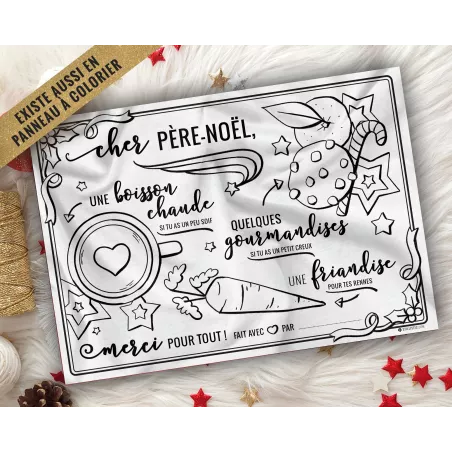 EXISTE AUSSI EN
PANNEAU À COLORIER
cher PÈRE-NOËL,
UNE boisson
chaude
SI TU AS UN PEU SOIF
QUELQUES
gourmandises
SI TU AS UN PETIT CREUX
UNE friandise
POUR TES RENNES
merci POUR TOUT ! FAIT AVEC PAR